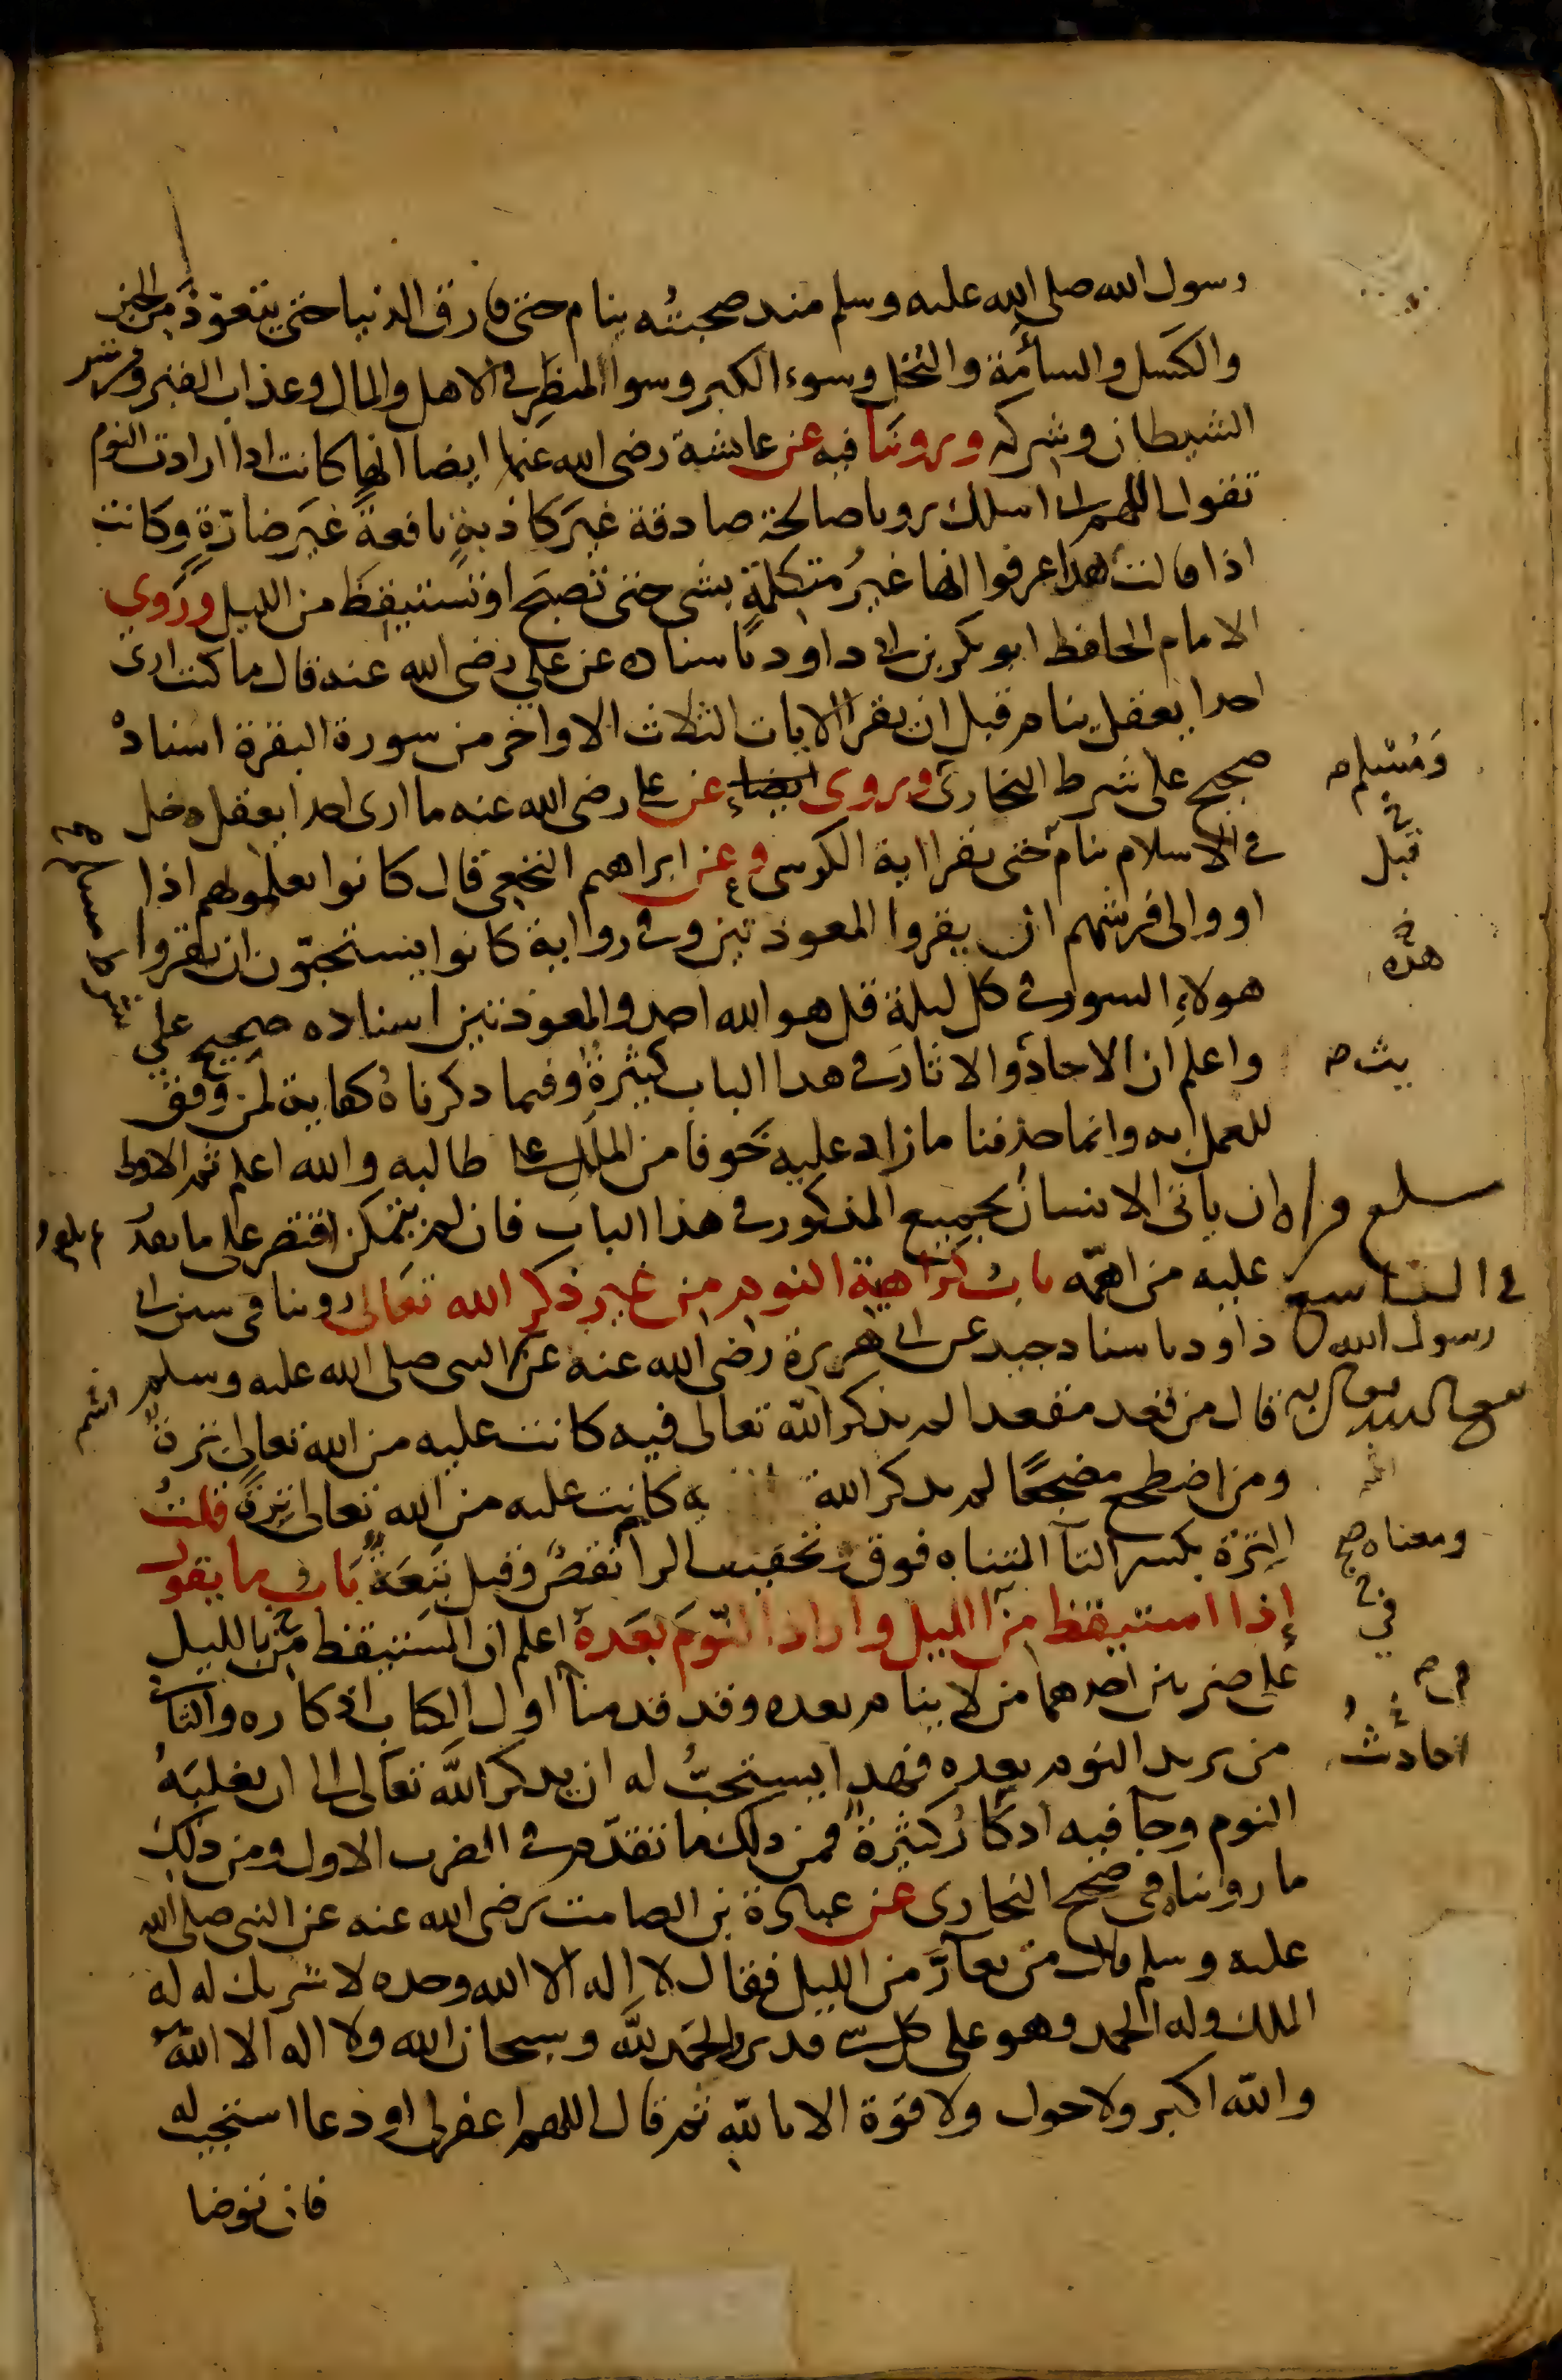 رسول الله صلى الله عليه وسلم منذ صحبته ينام حتى فارق الدنيا حتى يتعوذ من الجبن
والكسل والسآمة والبخل وسوء الكبر وسوا المنظر في الاهل والمال وعذاب القبر ومن شر
الشيطان وشركه وروينا فيه عن عائشة رضى الله عنها ايضا انها كانت اذا ارادت النوم
تقول اللهم انى اسلك رويا صالحة صادقة غير كاذبة نافعة غير ضارة وكانت
اذا قالت هذا عرفوا انها غير متكلمة بشى حتى تصبح او تستيقظ من الليل وروى
الامام الحافظ ابو بكر بن ابى داود باسناده عن علي رضى الله عنه قال ما كنت ارى
احدا يعقل ينام قبل ان يقرا الايات الثلاث الاواخر من سورة البقرة اسناده
صحيح على شرط البخارى وروى ايضا عن على رضى الله عنه ما ارى احدا يعقل دخل
ومسلم
في الاسلام ينام حتى يقرا اية الكرسى وعن ابراهيم النخعى قال كانوا يعلمونهم اذا
قبل
اووا الى فرشهم ان يقروا المعوذتين وفى رواية كانوا يستحبون ان يقروا
هذه
هولاء السور فى كل ليلة قل هو الله احد والمعوذتين اسناده صحيح على
شرط مسلم
واعلم ان الاحاد والاثار فى هذا الباب كثيرة وفيما ذكرناه كفاية لمن وفق
يث
للعمل به وانما حذفنا ما زاد عليه خوفا من الملل على طالبه والله اعلم ثم الاولى
ان ياتى الانسان بجميع المذكور فى هذا الباب فان لم يتمكن اقتصر على ما يقدر
عليه من اهمه باب كراهية النوم من غير ذكر الله تعالى روينا فى سنن ابى
فى التاسع
داود باسناد جيد عن ابى هريرة رضى الله عنه عن النبى صلى الله عليه وسلم
رسول الله
قال من قعد مقعدا لم يذكر الله تعالى فيه كانت عليه من الله تعالى ترة
ومن اضطجع مضجعا لم يذكر الله كانت عليه من الله تعالى ترة قلت
الترة بكسر التا المثناه فوق وتخفيف الرا نقص وقيل تبعة باب ما يقول
ومعناه صح
إذا استيقظ من الليل واراد النوم بعده اعلم ان المستيقظ من بالليل
في
على ضربين احدهما من لا ينام بعده وقد قدمنا اول الكتاب اذكاره والثانى
من يريد النوم بعده فهذا يستحب له ان يذكر الله تعالى الى ان يغلبه
النوم وجا فيه اذكار كثيرة فمن ذلك ما تقدم فى الضرب الاول ومن ذلك
ما رويناه فى صحيح البخارى عن عبادة بن الصامت رضى الله عنه عن النبى صلى الله
عليه وسلم قال من تعار من الليل فقال لا اله الا الله وحده لا شريك له له
الملك وله الحمد وهو على كل شى قدير والحمد لله وسبحان الله ولا اله الا الله
والله اكبر ولا حول ولا قوة الا بالله ثم قال اللهم اغفر لى او دعا استجيب له
فان توضا